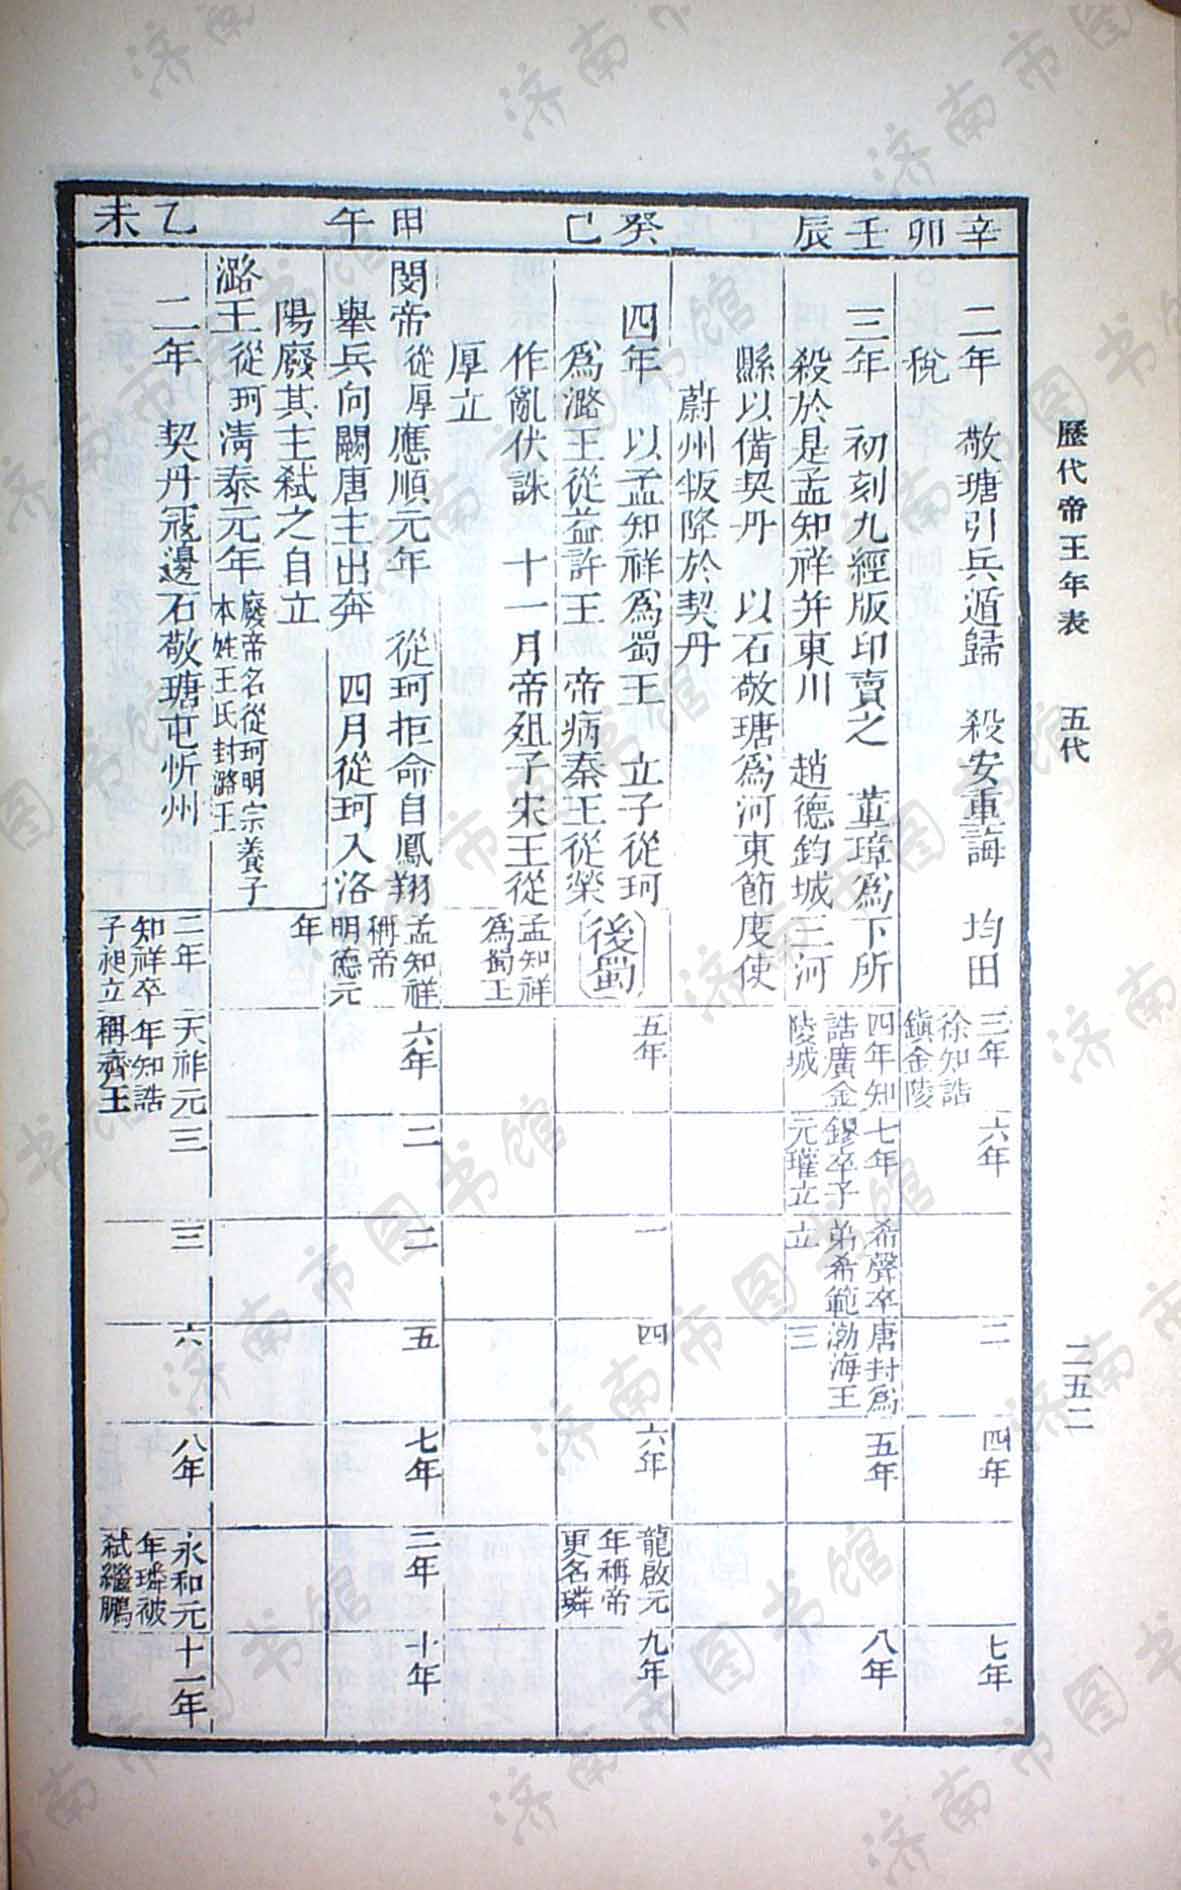 歷代帝王年表 五代 二五二
辛卯
二年 敬瑭引兵遁歸 殺安重誨 均田
稅
三年
徐知誥
鎭金陵
六年
二
四年
七年
壬辰
三年 初刻九經版印賣之 董璋爲下所
殺於是孟知祥并東川 趙德鈞城三河
縣以備契丹 以石敬瑭爲河東節度使
蔚州叛降於契丹
四年知
誥廣金
陵城
七年
鏐卒子
元瓘立
希聲卒
弟希範
立
唐封爲
渤海王
三
五年
八年
癸巳
四年 以孟知祥爲蜀王 立子從珂
爲潞王從益許王 帝病秦王從榮
作亂伏誅 十一月帝殂子宋王從
厚立
後蜀
孟知祥
爲蜀王
五年
一
四
六年
龍啟元
年稱帝
更名璘
九年
甲午
閔帝從厚應順元年 從珂拒命自鳳翔
舉兵向闕唐主出奔 四月從珂入洛
陽廢其主弒之自立
潞王從珂淸泰元年 廢帝名從珂明宗養子
本姓王氏封潞王
孟知祥
稱帝
明德元
年
六年
二
二
五
七年
二年
十年
乙未
二年 契丹寇邊石敬瑭屯忻州
二年
知祥卒
子昶立
天祚元
年知誥
稱齊王
三
三
六
八年
永和元
年璘被
弒繼鵬
十一年